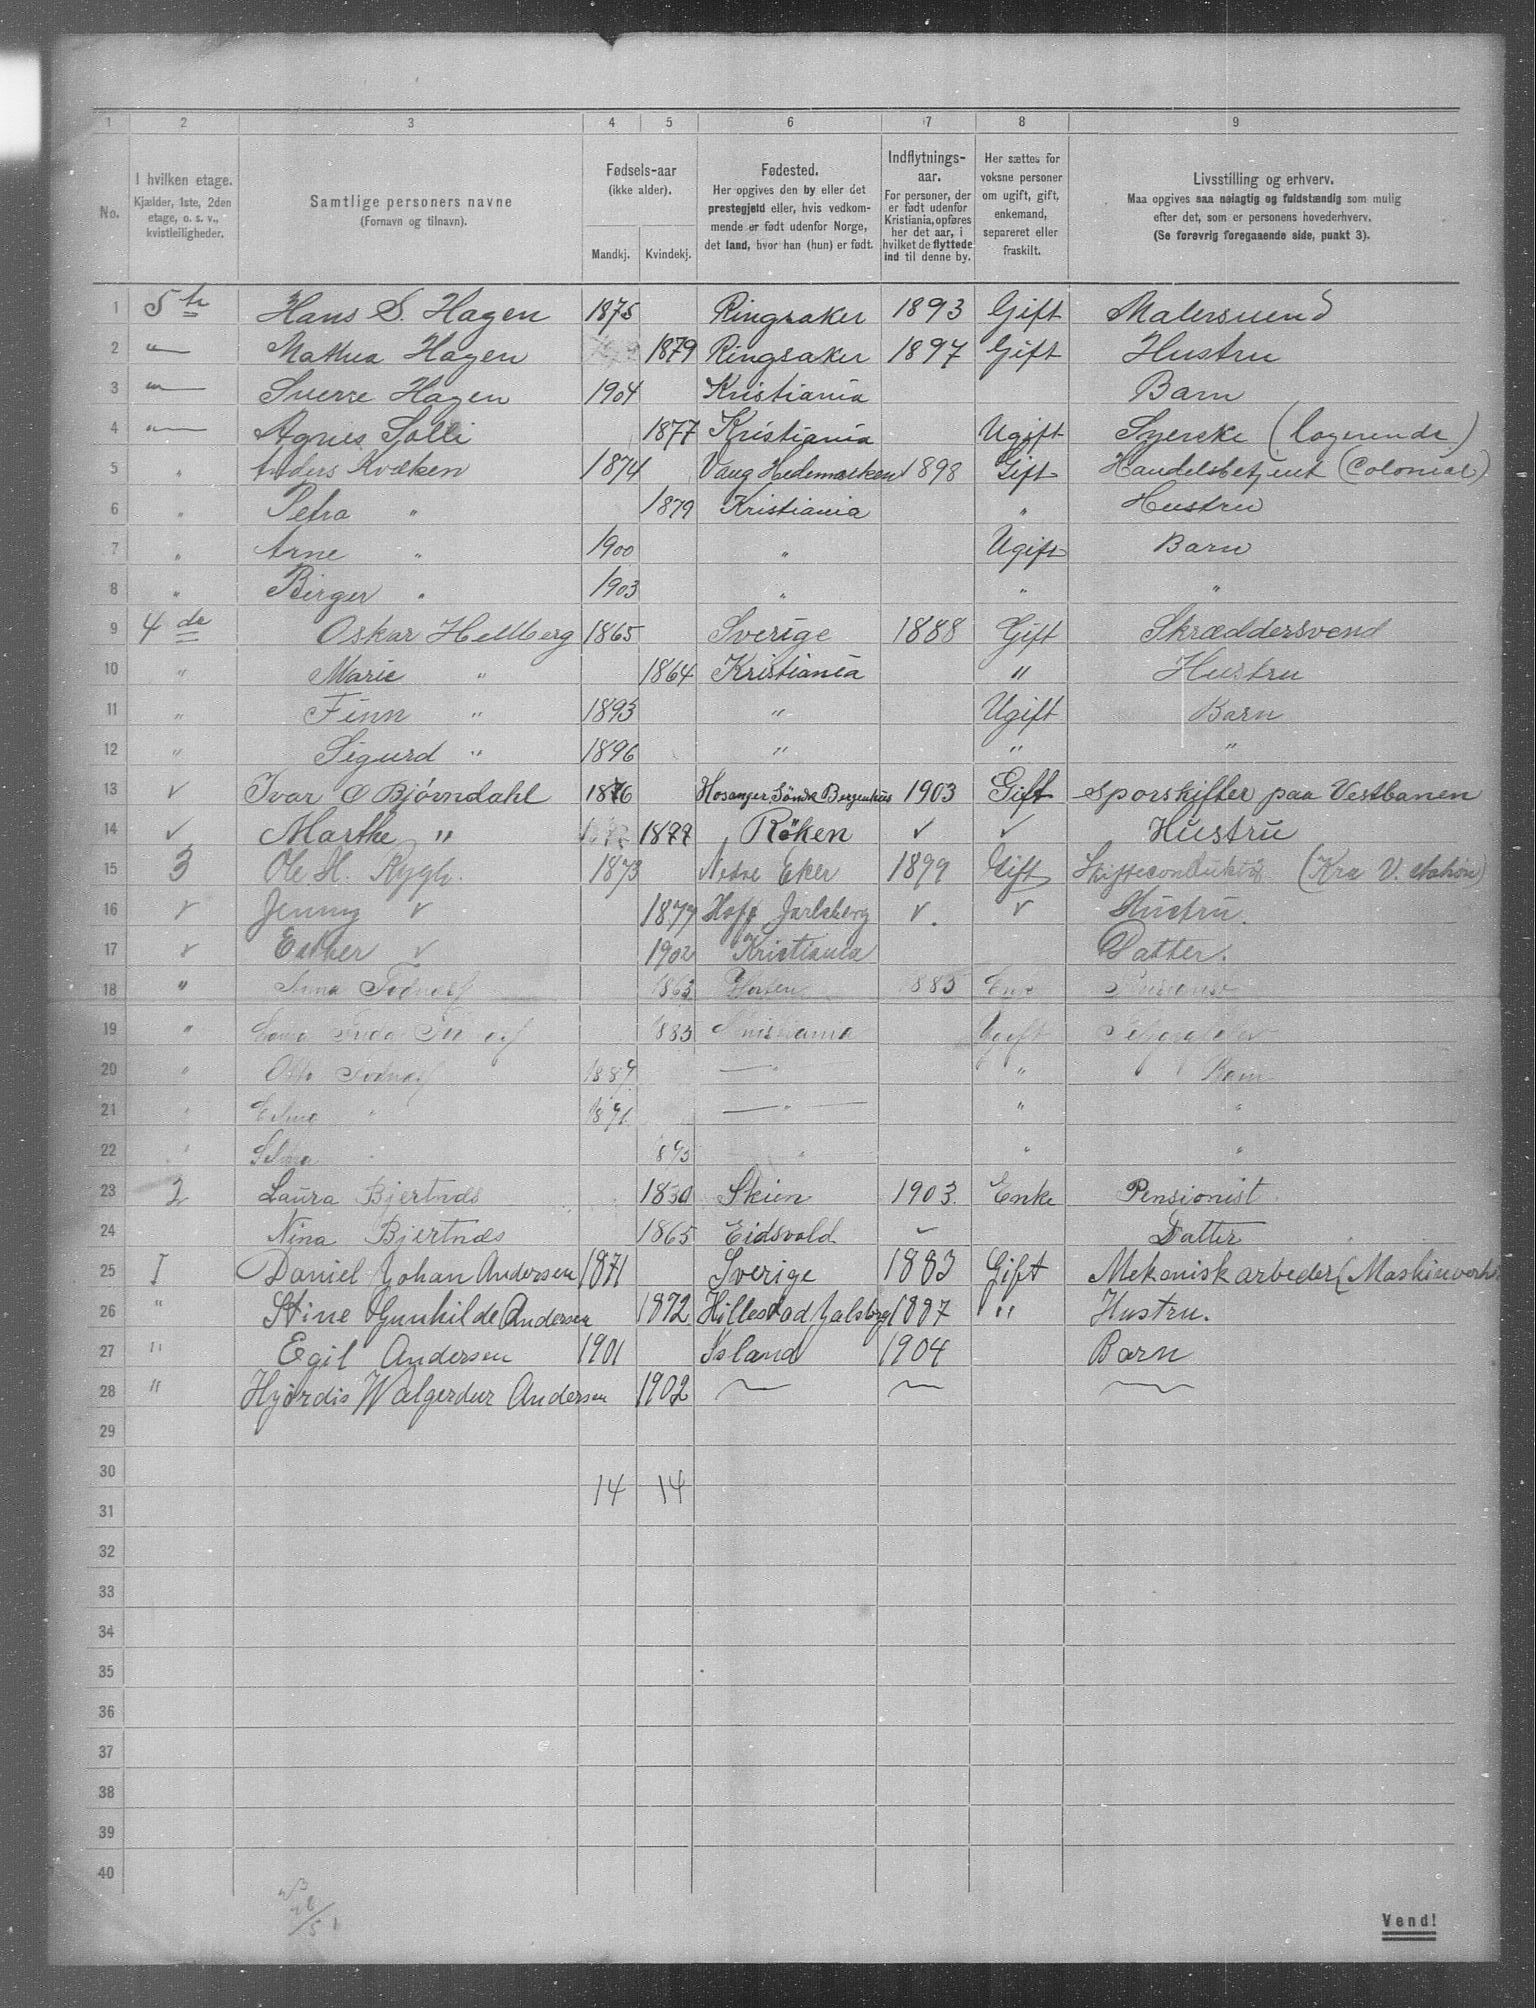 1 2 3 4 5 6 7 8 9
No.
I hvilken etage.
Kjælder, 1ste, 2den
etage, o. s. v.,
kvistleiligheder.
Samtlige personers navne
(Fornavn og tilnavn).
Fødsels-aar
(ikke alder).
Mandkj. Kvindekj.
Fødested.
Her opgives den by eller det
prestegjeld eller, hvis vedkom-
mende er født udenfor Norge,
det land, hvor han (hun) er født.
Indflytnings-
aar.
For personer, der
er født udenfor
Kristiania, opføres
her det aar, i
hvilket de flyttede
ind til denne by.
Her sættes for
voksne personer
om ugift, gift,
enkemand,
separeret eller
fraskilt.
Livsstilling og erhverv.
Maa opgives saa nøiagtig og fuldstændig som mulig
efter det, som er personens hovederhverv.
(Se forøvrig foregaaende side, punkt 3).
1 5te Hans S. Hagen 1875 Ringsaker 1893 Gift Malersvend
2 " Mathea Hagen 1879 Ringsaker 1897 Gift Hustru
3 " Sverre Hagen 1904 Kristiania Barn
4 " Agnes Solli 1877 Kristiania Ugift Syerske (logerende)
5 " Anders Kvæken 1874 Vang Hedemarken 1898 Gift Handelsbetjent (Colonial)
6 " Petra " 1879 Kristiania " Hustru
7 " Arne " 1900 " Ugift Barn
8 " Birger " 1903 " " "
9 4de Oskar Hellberg 1865 Sverige 1888 Gift Skræddersvend
10 " Marie " 1864 Kristiania " Hustru
11 " Finn " 1893 " Ugift Barn
12 " Sigurd " 1896 " " "
13 ✓ Ivar O Bjórndahl 1876 Hosanger, Søndr Bergenhus 1903 Gift Sporskifter paa Vestbanen
14 ✓ Marthe " 1877 Röken ✓ ✓ Hustru
15 3 Ole H. Rygh. 1873 Nedre Eker 1899 Gift Skifteconduktør (Kra V. station)
16 ✓ Jenny ✓ 1877 Hof Jarlsberg ✓. ✓ Hustru.
17 ✓ Esther ✓ 1902 Kristiania Datter.
18 " Anna 1863 Horten 1883 Enke
19 " 1883 Kristiania Ugift
20 " Otto 1889 " " Barn
21 " " 1891 " " "
22 " Selma " 1893 " " "
23 2 Laura Bjertnds 1830 Skien 1903. Enke Pensionist.
24 Nina Bjertnds 1865 Eidsvold. ✓ Datter
25 I Daniel Johan Andersen 1871 Sverige 1883 Gift Mekanisk arbeder (Maskinverks
26 " Stine Gunhilde Andersen 1872 Hillestad Jalsberg 1887 " Hustru.
27 " Egil Andersen 1901 Island 1904 Barn
28 " Hjórdis Walgerdur Andersen 1902 ~ ~ ~
29
30
14 14
31
32
33
34
35
36
37
38
39
40
Vend!